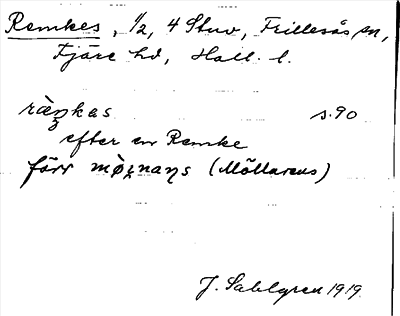 Remkes, 1/2, 4 Stuv, Frillesås sn,
Fjäre hd, Hall. l.
ràŋkas s. 90
efter en Remke
förr mø̀ɳnaɳs (Möllarens)
J. Sahlgren 1919.